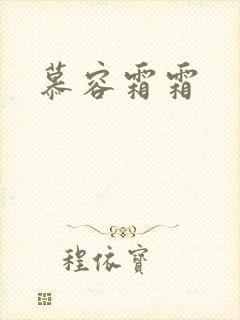 慕容霜霜
程依寶